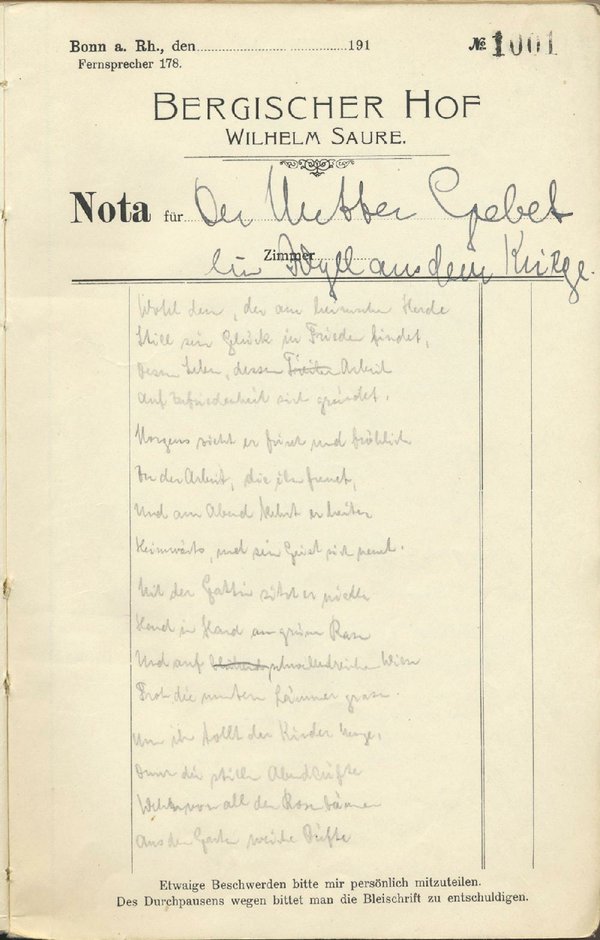 Bonn a. Rh., den 191 № 1001
Fernsprecher 178.
BERGISCHER HOF
WILHELM SAURE.
Nota für Der Mutter Gebet
Zimmer
Ein Idyll aus dem Kriege.
Wohl dem, der am heimischen Herde
Still sein Glück in Frieden findet,
Dessen Leben, dessen Arbeit
Auf Zufriedenheit sich gründet.
Morgens zieht er frisch und fröhlich
Zu der Arbeit, die ihn freuet,
Und am Abend kehrt er heiter
Heimwärts, und sein Geist sich
Mit der Gattin sitzt er
Hand in Hand am grünen Rasen
Und auf Wiesen
Froh die muntern Lämmer grasen.
Um ihn tollt der Kinder Menge,
Durch die stillen Abendlüfte
Wehen von all den Rosenbäumen
Aus dem Garten weiche Düfte
Etwaige Beschwerden bitte mir persönlich mitzuteilen.
Des Durchpausens wegen bittet man die Bleischrift zu entschuldigen.